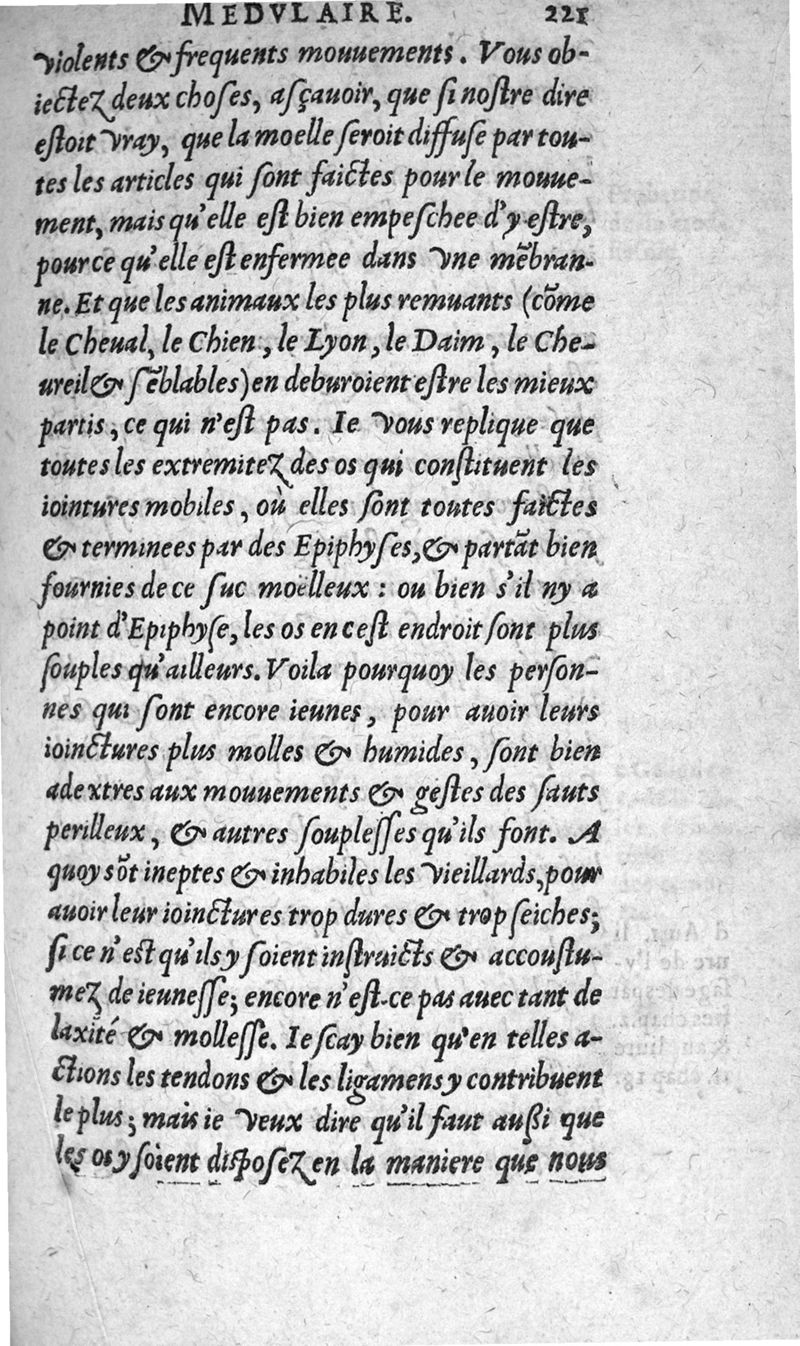 MEDVLAIRE. 221
violents & frequents mouuements. Vous ob-
iectez deux choſes, aſçauoir, que ſi noſtre dire
eſtoit vray, que la moelle ſeroit diffuſe par tou-
tes les articles qui ſont faictes pour le mouue-
ment, mais qu'elle eſt bien empeſchee d'y eſtre,
pour ce qu'elle eſt enfermee dans vne mẽbran-
ne. Et que les animaux les plus remuants (cõme
le Cheual, le Chien, le Lyon, le Daim, le Che-
ureil & ſẽblables) en deburoient eſtre les mieux
partis, ce qui n'eſt pas. Ie vous replique que
toutes les extremitez des os qui conſtituent les
iointures mobiles, où elles ſont toutes faictes
& terminees par des Epiphyſes, & partãt bien
fournies de ce ſuc moëlleux : ou bien s'il ny a
point d'Epiphyſe, les os en ceſt endroit ſont plus
ſouples qu'ailleurs. Voila pourquoy les perſon-
nes qui ſont encore ieunes, pour auoir leurs
ioinctures plus molles & humides, ſont bien
adextres aux mouuements & geſtes des ſauts
perilleux, & autres ſoupleſſes qu'ils font. A
quoy sõt ineptes & inhabiles les vieillards, pour
auoir leur ioinctures trop dures & trop ſeiches;
ſi ce n'eſt qu'ils y ſoient inſtruicts & accouſtu-
mez de ieuneſſe; encore n'eſt-ce pas auec tant de
laxité & molleſſe. Ie ſcay bien qu'en telles a-
ctions les tendons & les ligamens y contribuent
le plus; mais ie veux dire qu'il faut außi que
les os y ſoient diſpoſez en la maniere que nous